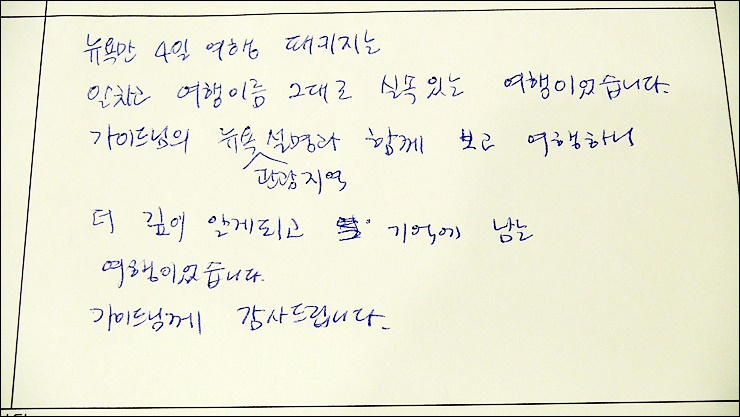 뉴욕만 4일 여행 패키지는
알차고 여행이름 그대로 실속있는 여행이었습니다.
가이드님의 뉴욕 설명과 함께 보고 여행하니
관광지역
더 깊이 알게되고 기억에 남는
여행이었습니다.
가이드님께 감사드립니다.